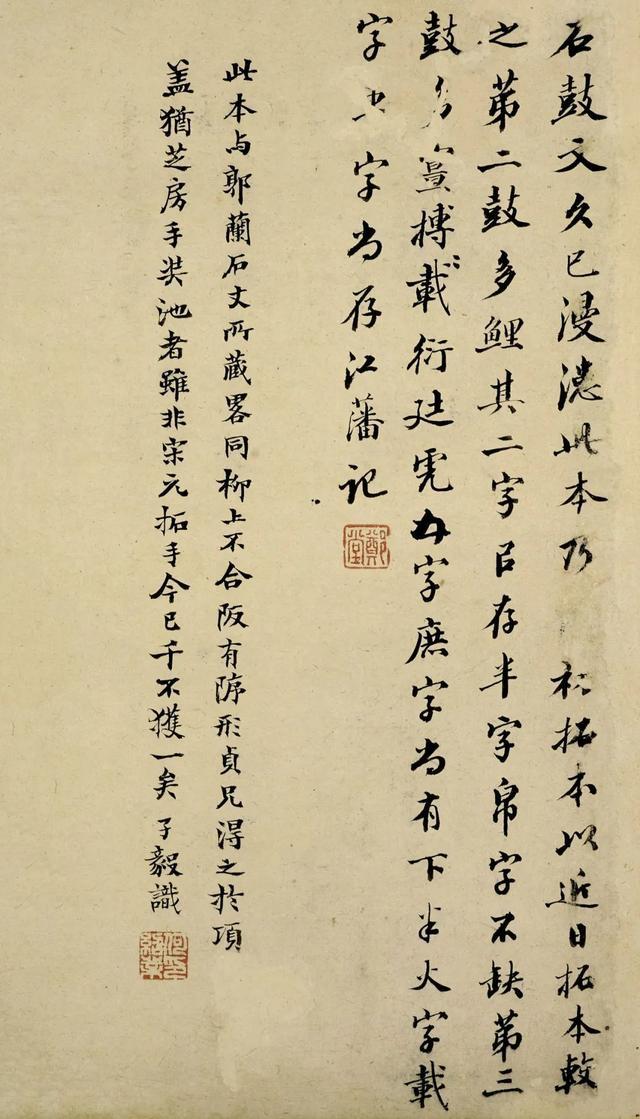 石鼓文久已漫漶此本乃初拓本以近日拓本較
之苐二鼓多鯉其二字㠯存半字帛字不缺苐三
鼓多 搏載衍廷 字庶字尚有下半火字載
字 字尚存江藩記
鄭堂
此本与郭蘭石丈所藏畧同柳上不合阪有陊形貞兄淂之於項
盖猶芝房手装池者雖非宋元拓手今已千不獲一矣子毅識